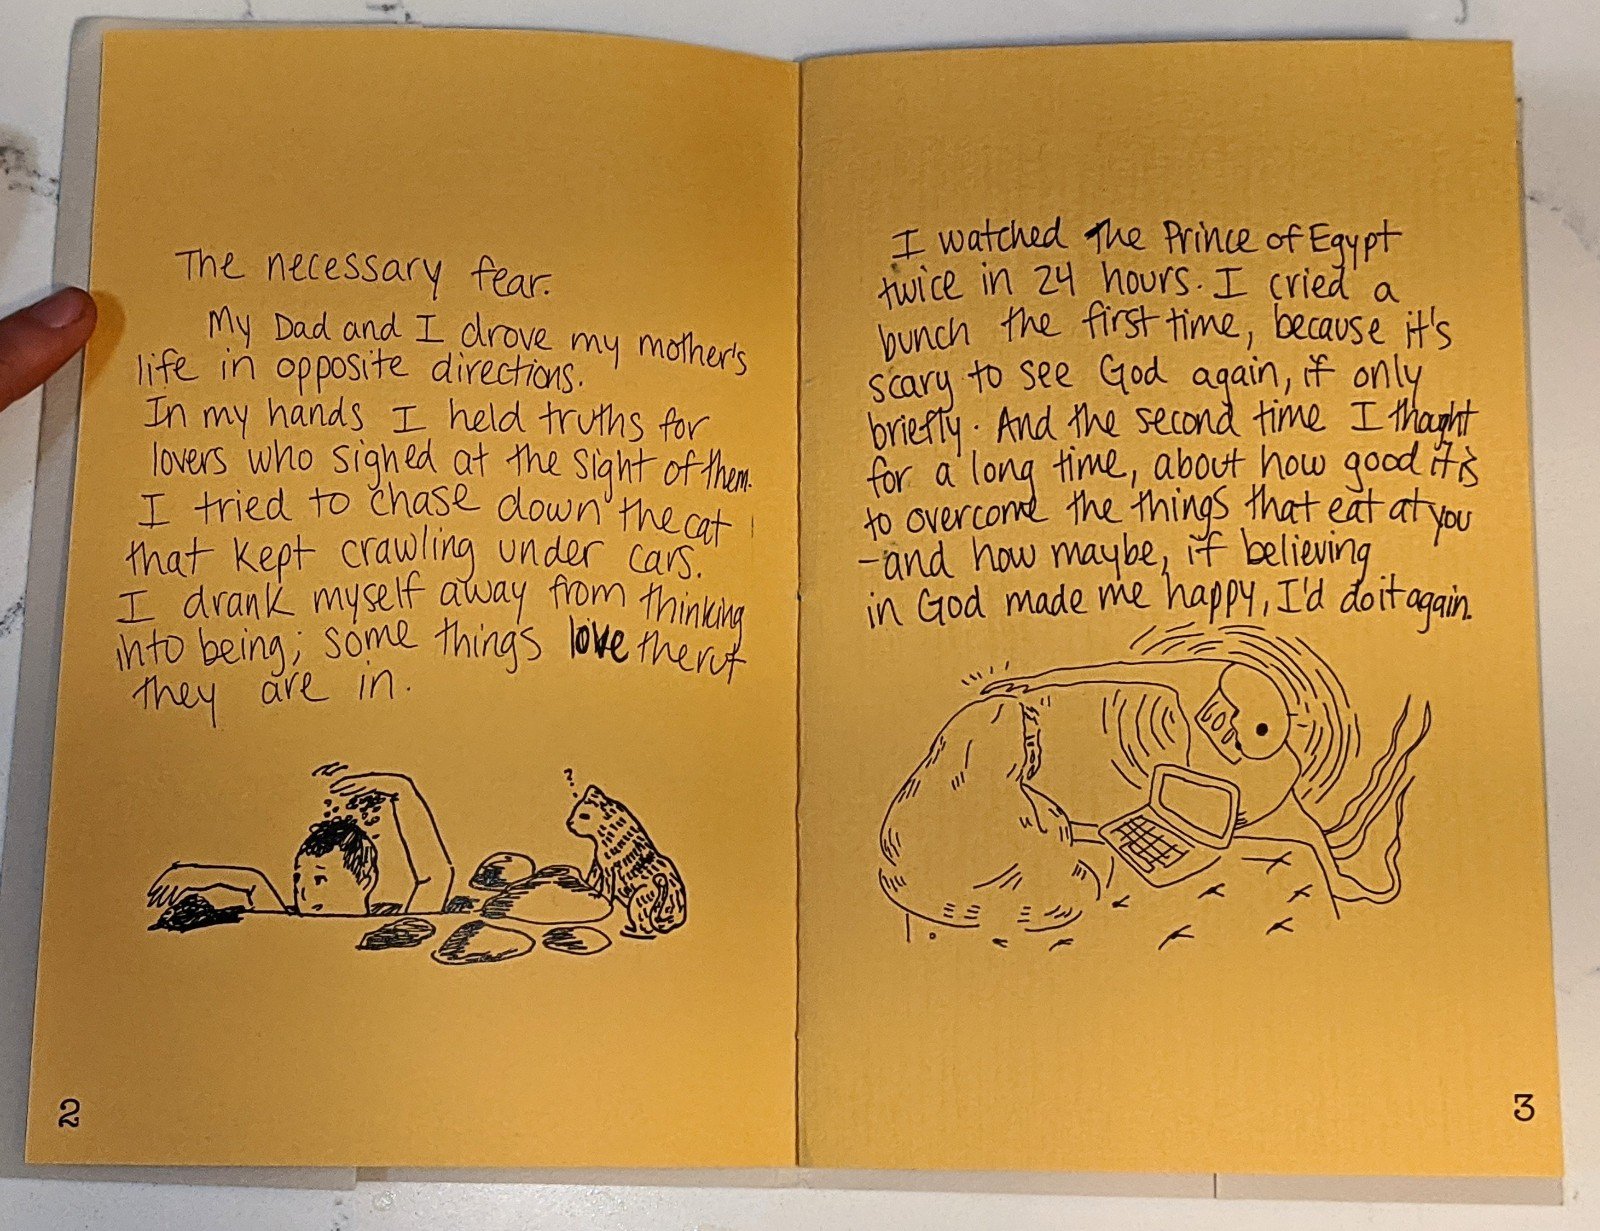 The necessary fear.
My Dad and I drove my mother's
life in opposite directions.
In my hands I held truths for
lovers who sighed at the sight of them.
I tried to chase down the cat
that kept crawling under cars.
I drank myself away from thinking
into being; some things love the rut
they are in.
?
2
I watched The Prince of Egypt
twice in 24 hours. I cried a
bunch the first time, because it's
scary to see God again, if only
briefly. And the second time I thought
for a long time, about how good it is
to overcome the things that eat at you
-and how maybe, if believing
in God made me happy, I'd do it again.
3